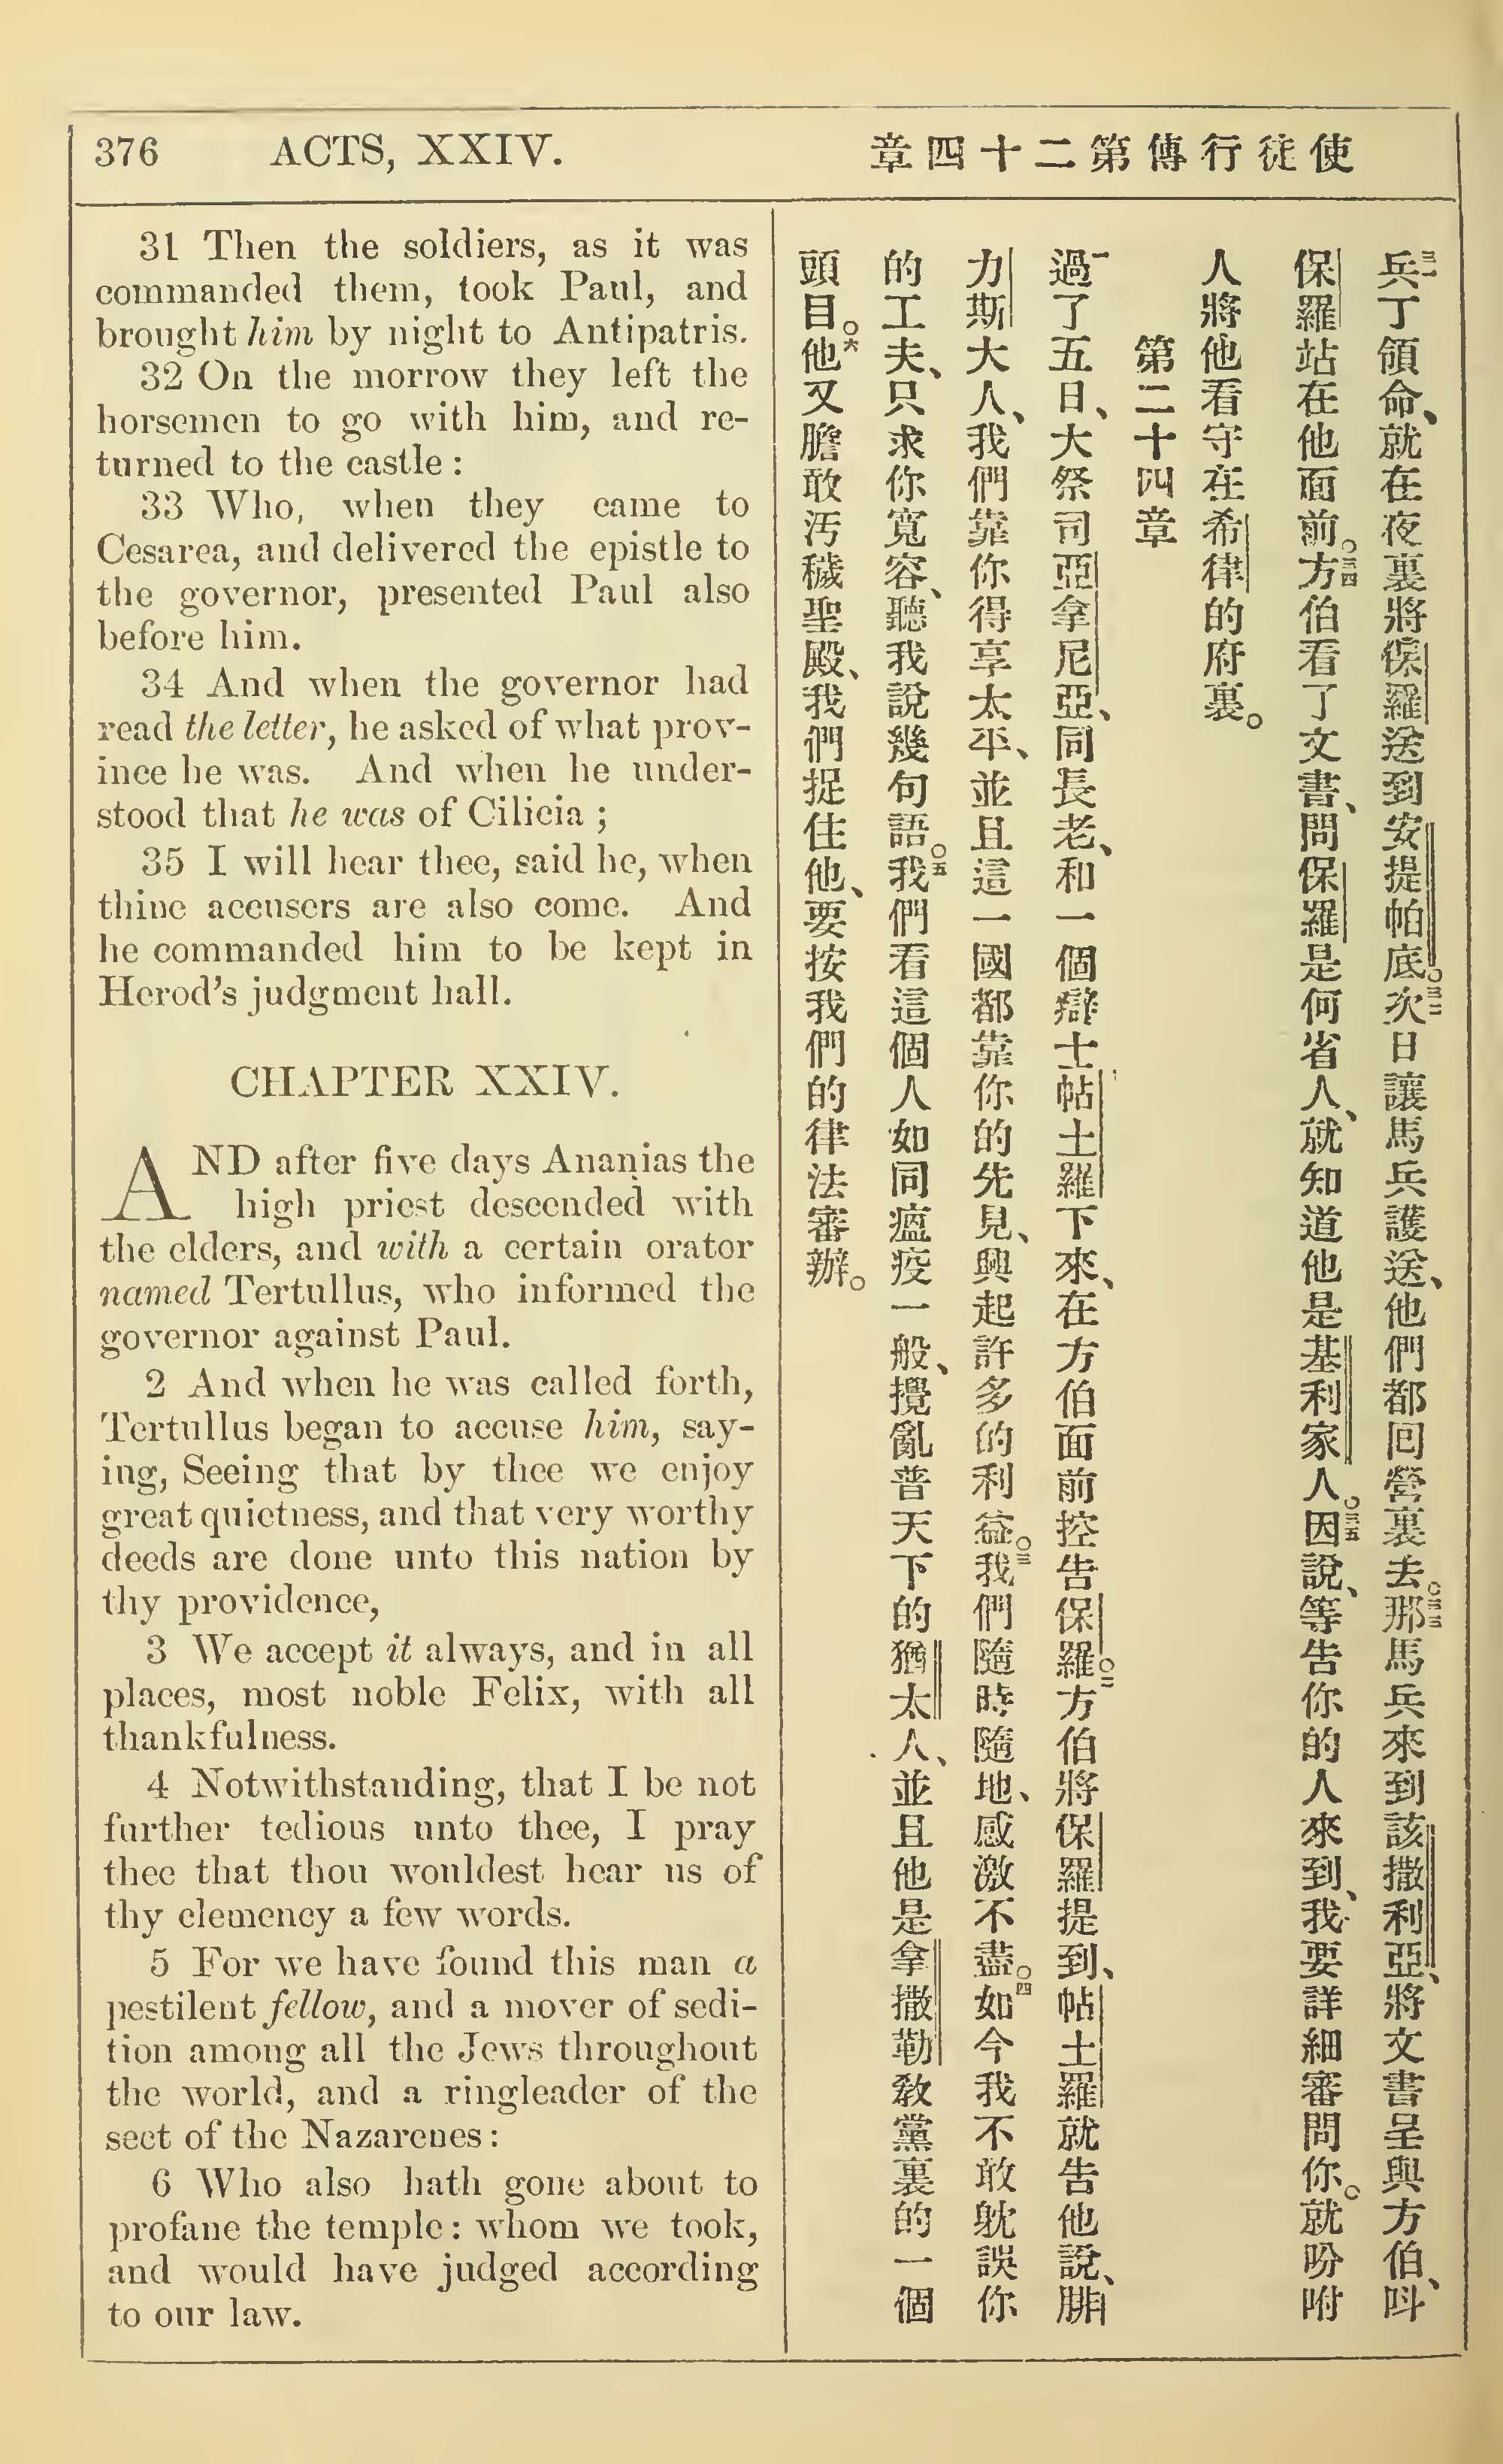 376 ACTS, XXIV.
章四十二第傳行徒使
31 Then the soldiers, as it was
commanded them, took Paul, and
brought him by night to Antipatris.
32 On the morrow they left the
horsemen to go with him, and re-
turned to the castle :
33 Who, when they came to
Cesarea, and delivered the epistle to
the governor, presented Paul also
before him.
34 And when the governor had
read the letter, he asked of what prov-
ince he was. And when he under-
stood that he was of Cilicia ;
35 I will hear thee, said he, when
thine accusers are also come. And
he commanded him to be kept in
Herod's judgment hall.
CHAPTER XXIV.
AND after five days Ananias the
high priest descended with
the elders, and with a certain orator
named Tertullus, who informed the
governor against Paul.
2 And when he was called forth,
Tertullus began to accuse him, say-
ing, Seeing that by thee we enjoy
great quietness, and that very worthy
deeds are done unto this nation by
thy providence,
3 We accept it always, and in all
places, most noble Felix, with all
thankfulness.
4 Notwithstanding, that I be not
further tedious unto thee, I pray
thee that thou wouldest hear us of
thy clemency a few words.
5 For we have found this man a
pestilent fellow, and a mover of sedi-
tion among all the Jews throughout
the world, and a ringleader of the
sect of the Nazarenes :
6 Who also hath gone about to
profane the temple : whom we took,
and would have judged according
to our law.
三一兵丁領命、就在夜裏將保羅送到安提帕底。三二次日讓馬兵護送、他們都回營裏去。三三那馬兵來到該撒利亞、將文書呈與方伯、呌
保羅站在他面前。三四方伯看了文書、問保羅是何省人、就知道他是基利家人。三五因說、等告你的人來到、我要詳細審問你。就吩咐
人將他看守在希律的府裏。
第二十四章
一過了五日、大祭司亞拿尼亞、同長老、和一個辯士帖土羅下來、在方伯面前控告保羅。二方伯將保羅提到、帖土羅就告他說、腓
力斯大人、我們靠你得享太平、並且這一國都靠你的先見、興起許多的利益。三我們隨時隨地、感激不盡。四如今我不敢躭誤你
的工夫、只求你寬容、聽我說幾句語。五我們看這個人如同瘟疫一般、攪亂普天下的猶太人、並且他是拿撒勒教黨裏的一個
頭目。六他又膽敢汚穢聖殿、我們捉住他、要按我們的律法審辦。